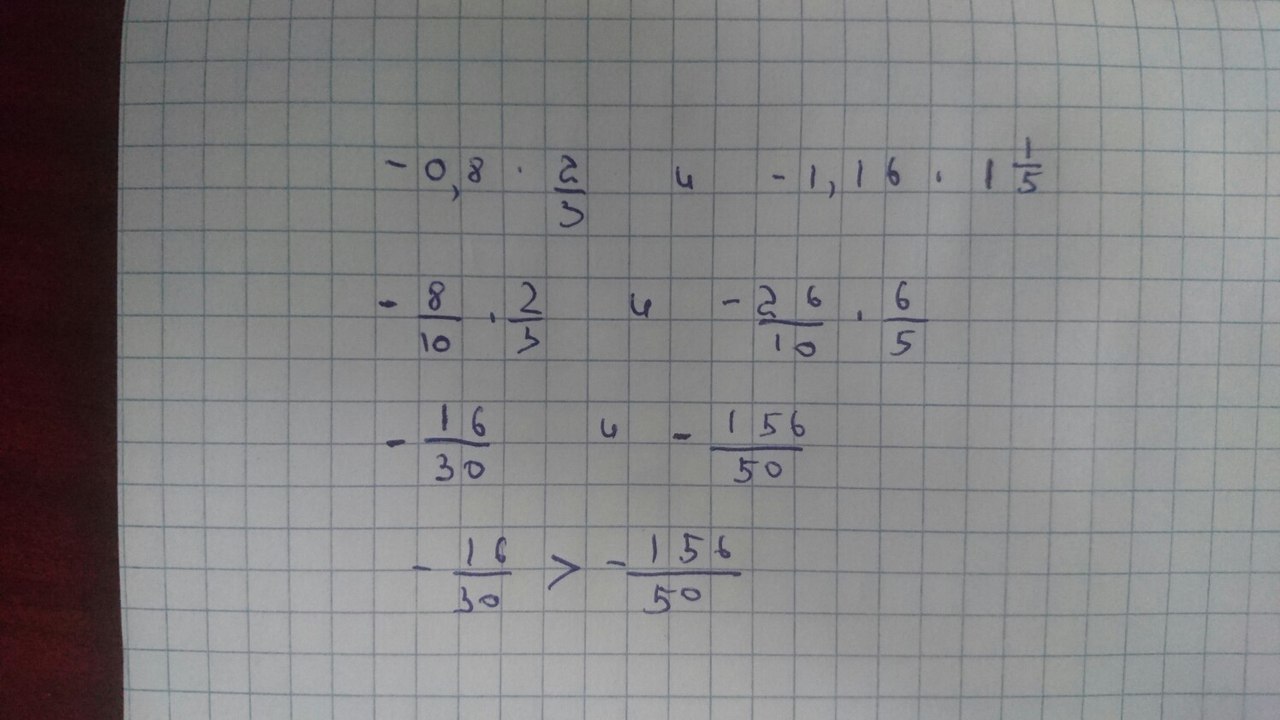 - 0,8 · 2/3 и - 1,16 · 1 1/5
- 8/10 · 2/3 и - 26/10 · 6/5
- 16/30 и - 156/50
- 16/30 > - 156/50